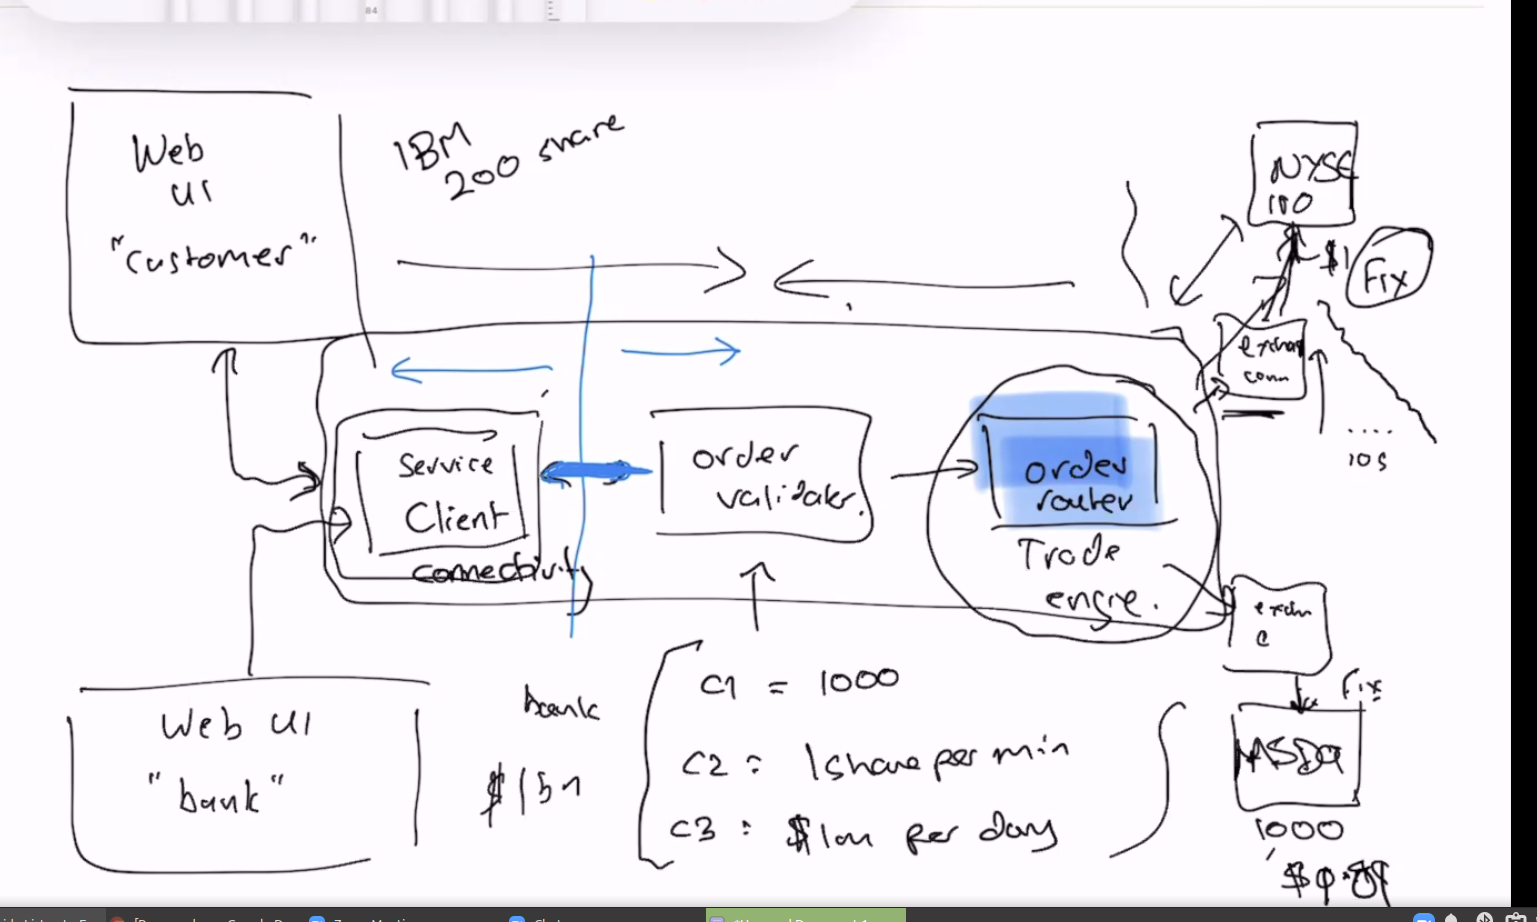 84
Web
UI
"customer"
IBM
200 share
NYSE
100
$1
Fix
exchan
conn
....
10s
Service
Client
connectivity
order
validater.
order
router
Trade
engine.
exchn
c
Fix
NASDQ
1000
Web UI
"bank"
bank
$1bn
C1 = 1000
C2 : 1 share per min
C3 : $1m per day